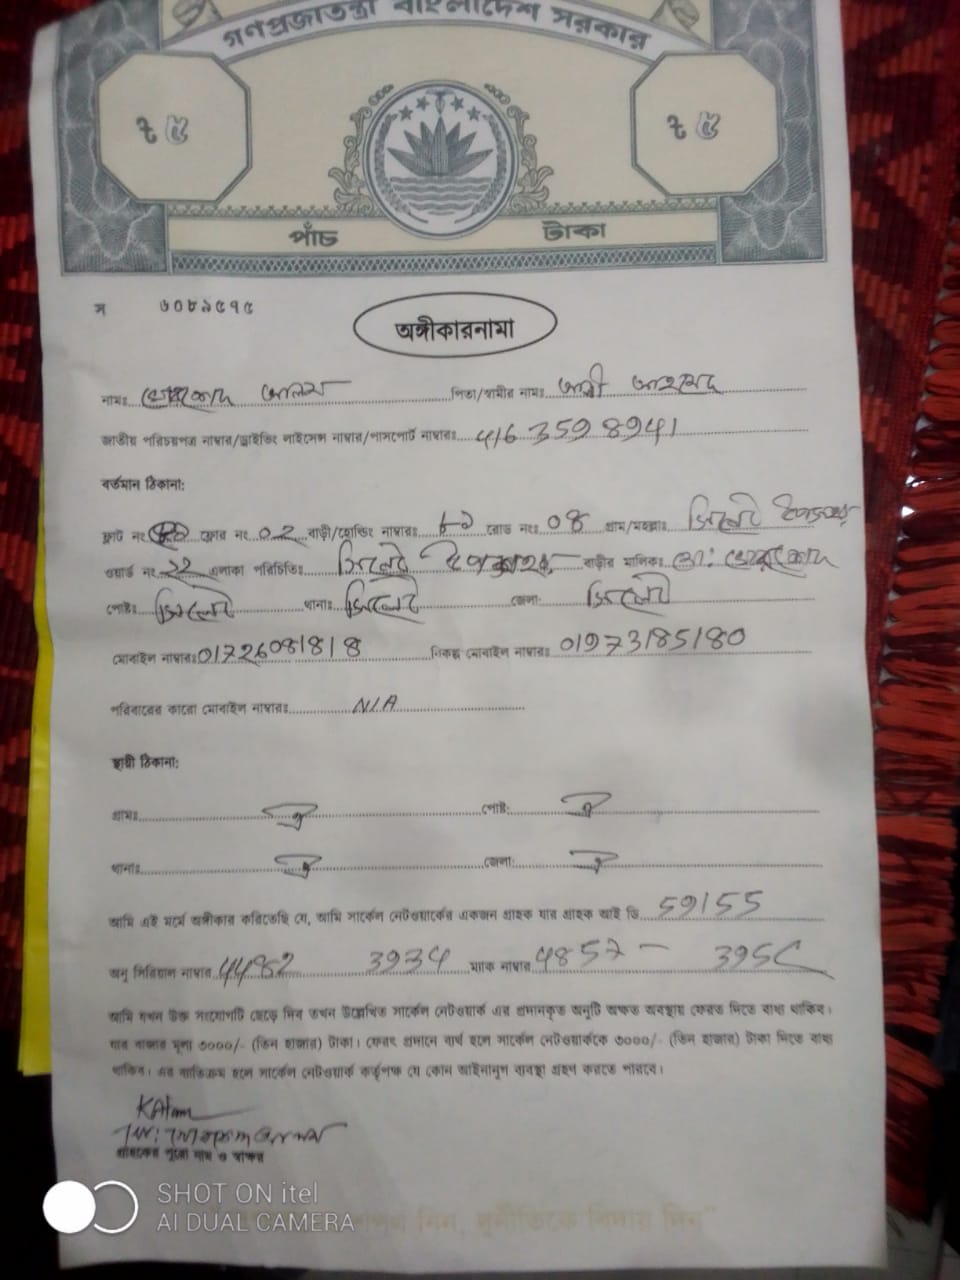 গণপ্রজাতন্ত্রী বাংলাদেশ সরকার
৳ ৫ ৳ ৫
পাঁচ টাকা
স ৬০৮৯৫৭৫
অঙ্গীকারনামা
নামঃ আলম পিতা/স্বামীর নামঃ আলী আহমেদ
জাতীয় পরিচয়পত্র নাম্বার/ড্রাইভিং লাইসেন্স নাম্বার/পাসপোর্ট নাম্বারঃ
বর্তমান ঠিকানা:
ফ্লাট নং ফ্লোর নং ০২ বাড়ী/হোল্ডিং নাম্বারঃ রোড নংঃ ০৪ গ্রাম/মহল্লাঃ
ওয়ার্ড নং ২২ এলাকা পরিচিতিঃ বাড়ীর মালিকঃ মো:
পোষ্টঃ সিলেট থানাঃ সিলেট জেলা: সিলেট
মোবাইল নাম্বারঃ 01726081818 বিকল্প মোবাইল নাম্বারঃ 01973185180
পরিবারের কারো মোবাইল নাম্বারঃ N/A
স্থায়ী ঠিকানা:
গ্রামঃ ঐ পোষ্ট: ঐ
থানাঃ ঐ জেলা: ঐ
আমি এই মর্মে অঙ্গীকার করিতেছি যে, আমি সার্কেল নেটওয়ার্কের একজন গ্রাহক যার গ্রাহক আই ডি 59155
অনু সিরিয়াল নাম্বার 4482 3934 ম্যাক নাম্বার 4857 - 395C
আমি যখন উক্ত সংযোগটি ছেড়ে দিব তখন উল্লেখিত সার্কেল নেটওয়ার্ক এর প্রদানকৃত অনুটি অক্ষত অবস্থায় ফেরত দিতে বাধ্য থাকিব।
যার বাজার মূল্য ৩০০০/- (তিন হাজার) টাকা। ফেরৎ প্রদানে ব্যর্থ হলে সার্কেল নেটওয়ার্ককে ৩০০০/- (তিন হাজার) টাকা দিতে বাধ্য
থাকিব। এর ব্যতিক্রম হলে সার্কেল নেটওয়ার্ক কর্তৃপক্ষ যে কোন আইনানুগ ব্যবস্থা গ্রহন করতে পারবে।
গ্রাহকের পুরো নাম ও স্বাক্ষর
SHOT ON itel
AI DUAL CAMERA
নিন, দুর্নীতিকে বিদায় দিন"